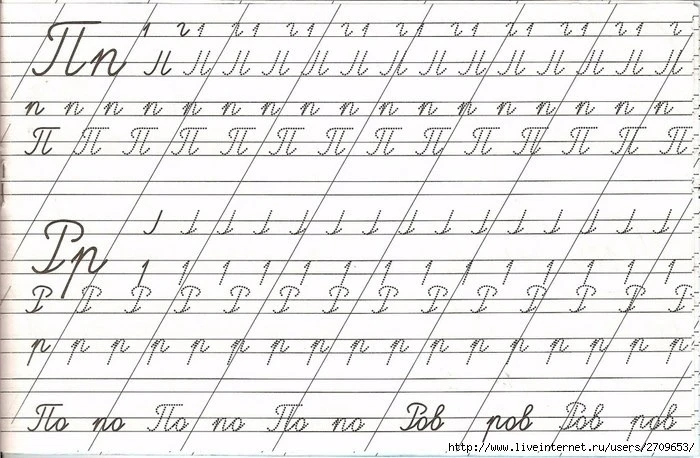 Пп
п п п п п п п п п п п п п п п п п
П П П П П П П П П П П П П П
Рр
Р Р Р Р Р Р Р Р Р Р Р Р Р Р
р р р р р р р р р р р р р р р р р
По по По по По по Ров ров Ров ров
http://www.liveinternet.ru/users/2709653/